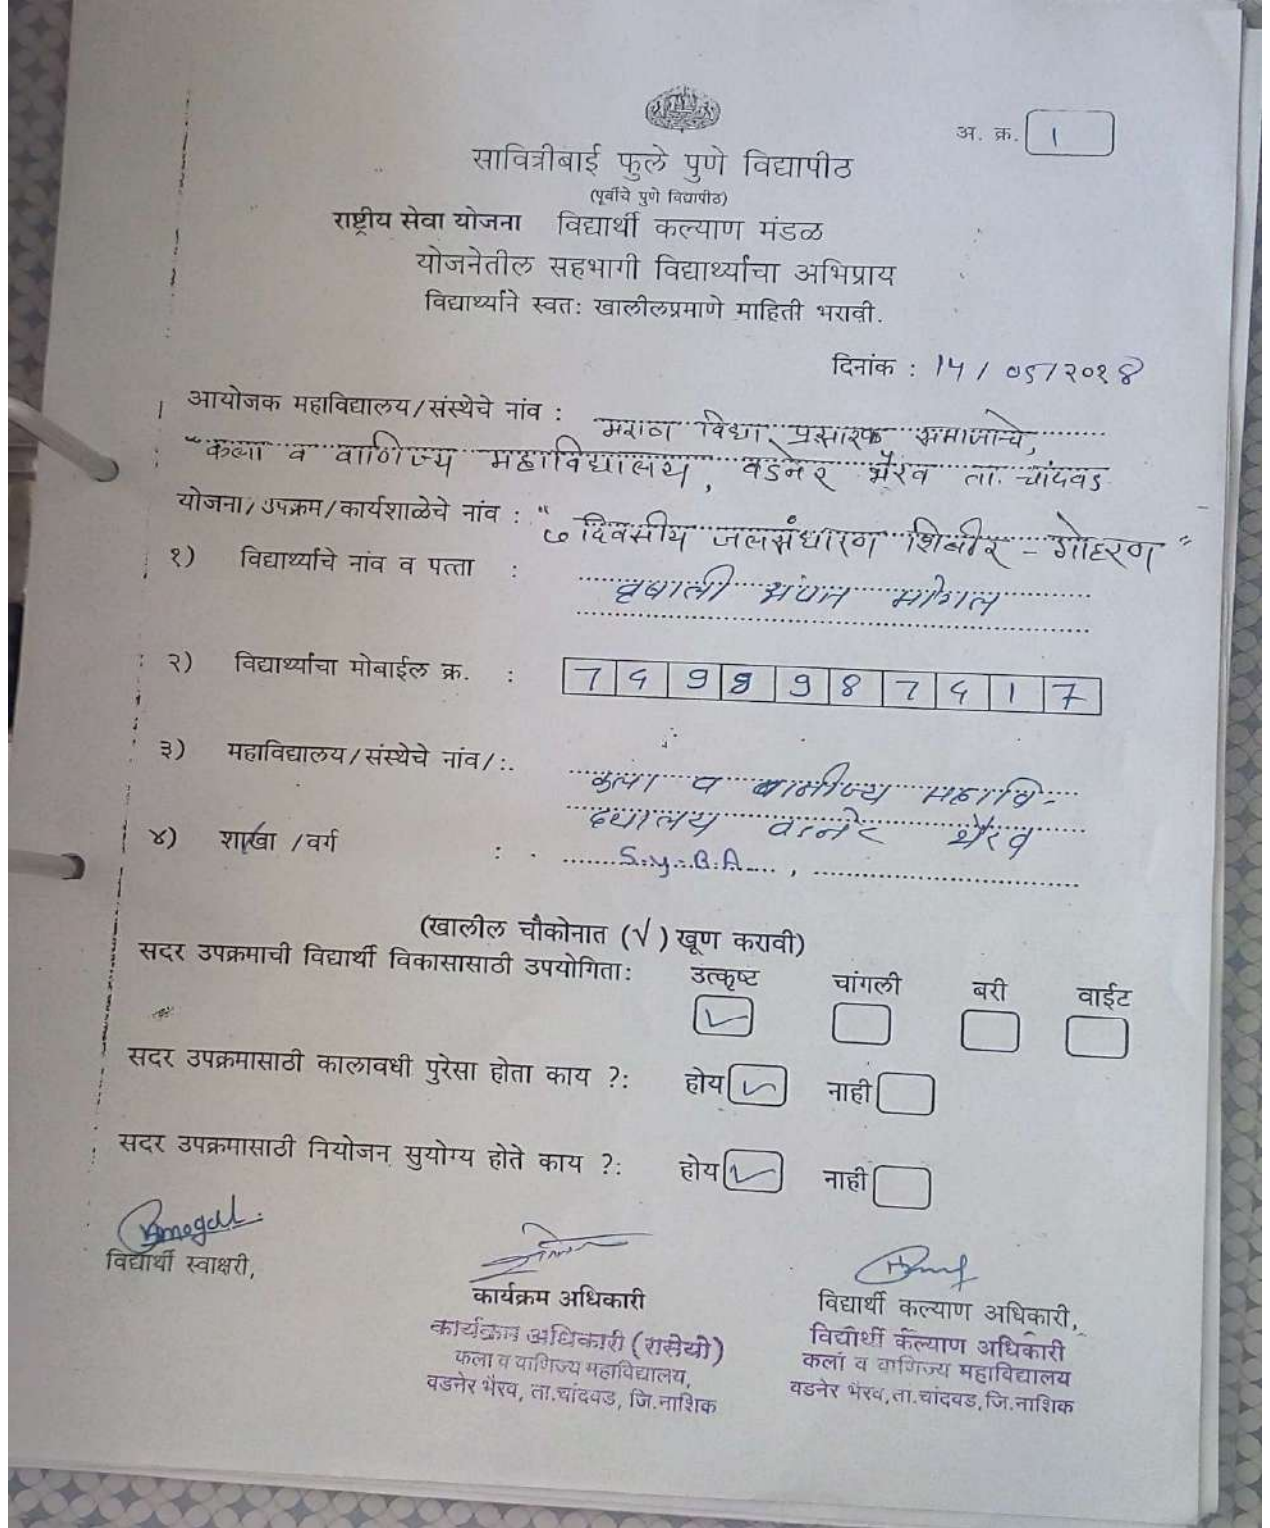 अ. क्र. 1
सावित्रीबाई फुले पुणे विद्यापीठ
(पूर्वीचे पुणे विद्यापीठ)
राष्ट्रीय सेवा योजना विद्यार्थी कल्याण मंडळ
योजनेतील सहभागी विद्यार्थ्यांचा अभिप्राय
विद्यार्थ्याने स्वतः खालीलप्रमाणे माहिती भरावी.
दिनांक : 14 / 05 / २०१४
आयोजक महाविद्यालय/संस्थेचे नांव : मराठा विद्या प्रसारक समाजाचे,
"कला व वाणिज्य महाविद्यालय, वडनेर भैरव ता. चांदवड
योजना/उपक्रम/कार्यशाळेचे नांव : "७ दिवसीय जलसंधारण शिबीर - गोहरण"
१) विद्यार्थ्याचे नांव व पत्ता : वृषाली संपत मोगल
२) विद्यार्थ्यांचा मोबाईल क्र. :
३) महाविद्यालय/संस्थेचे नांव/:. कला व वाणीज्य महावि-
द्यालय वडनेर भैरव
४) शाखा /वर्ग : S.y.B.A.,
(खालील चौकोनात (√) खूण करावी)
सदर उपक्रमाची विद्यार्थी विकासासाठी उपयोगिता: उत्कृष्ट चांगली बरी वाईट
सदर उपक्रमासाठी कालावधी पुरेसा होता काय ?: होय नाही
सदर उपक्रमासाठी नियोजन सुयोग्य होते काय ?: होय नाही
विद्यार्थी स्वाक्षरी,
कार्यक्रम अधिकारी
कार्यक्रम अधिकारी (रासेयो)
कला व वाणिज्य महाविद्यालय,
वडनेर भैरव, ता.चांदवड, जि.नाशिक
विद्यार्थी कल्याण अधिकारी,
विद्यार्थी कल्याण अधिकारी
कला व वाणिज्य महाविद्यालय
वडनेर भैरव,ता.चांदवड,जि.नाशिक